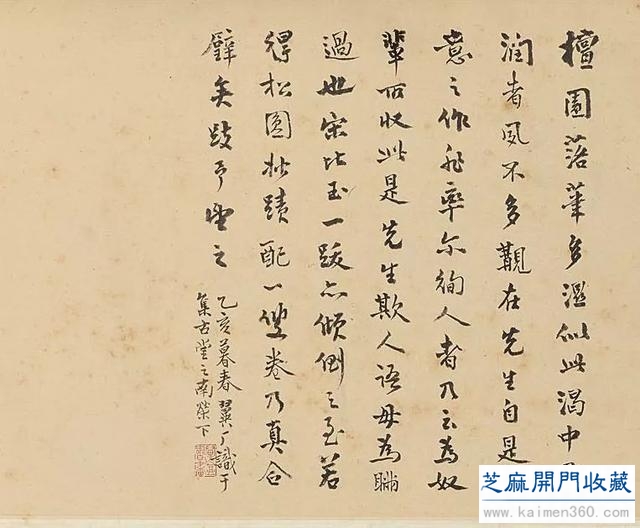 檀園落筆多溼似此渴中
潤者夙不多覯在先生自是
意之作非率尔徇人者乃云為奴
輩所收此是先生欺人語毋為瞞
過也宋比玉一跋亦傾倒之至若
得松圓蹟配一雙卷乃真合
璧矣跂予望之
乙亥暮春翼厂識于
集古堂之南榮下
芝麻開門收藏
www.kaimen360.com